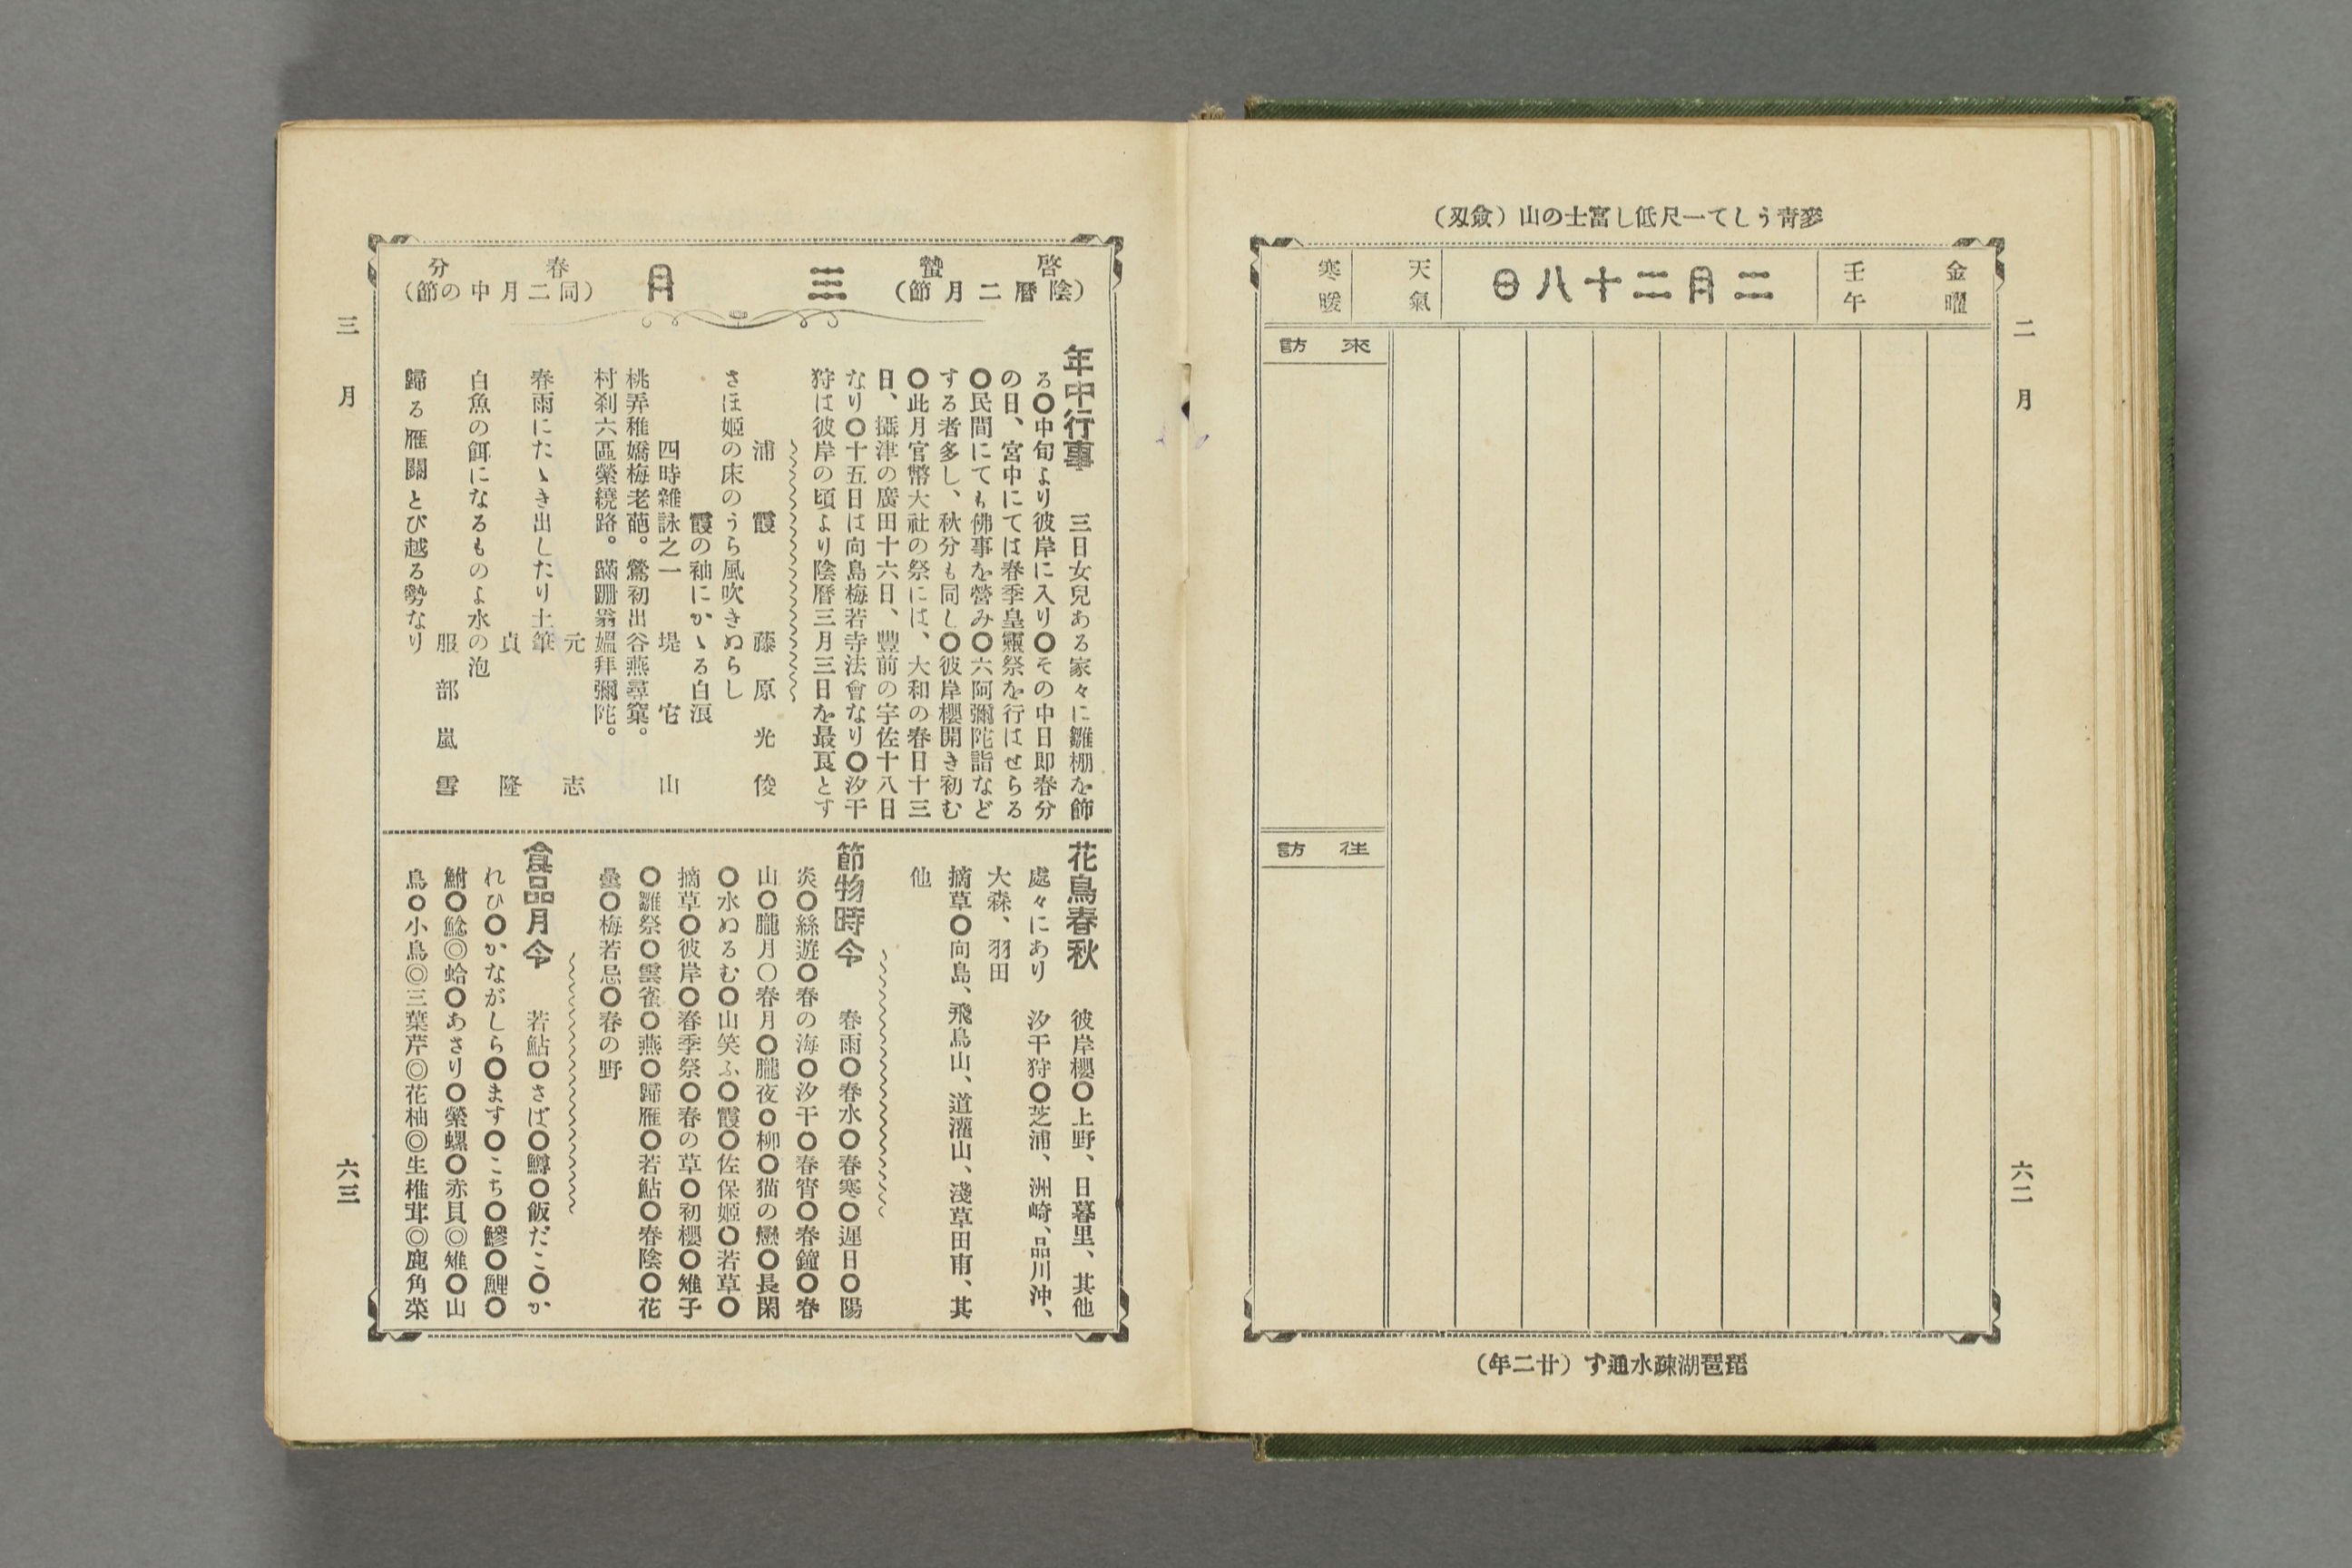 麥靑うして一尺低し富士の山（僉刄）
金曜
壬午
二月二十八日
天氣
寒暖
來訪
往訪
琵琶湖疎水通ず（廿二年）
二月
六二
啓蟄
（陰曆二月節）
三月
春分
（同二月中の節）
年中行事　三日女兒ある家々に雛棚を飾
る〇中旬より彼岸に入り〇その中日即春分
の日、宮中にては春季皇靈祭を行はせらる
〇民間にても佛事を營み〇六阿彌陀詣など
する者多し、秋分も同し〇彼岸櫻開き初む
〇此月官幣大社の祭には、大和の春日十三
日、攝津の廣田十六日、豐前の宇佐十八日
なり〇十五日は向島梅若寺法會なり〇汐干
狩は彼岸の頃より陰曆三月三日を最良とす
浦霞　藤原光俊
さほ姬の床のうら風吹きぬらし
霞の袖にかゝる白浪
四時雜詠之一　堤它山
桃弄稚嬌梅老葩。鶯初出谷燕尋窠。
村刹六區縈繞路。蹣跚翁媼拜彌陀。
元志
春雨にたゝき出したり土筆
貞隆
白魚の餌になるものよ水の泡
服部嵐雪
歸る雁關とび越る勢なり
花鳥春秋　彼岸櫻〇上野、日暮里、其他
處々にあり　汐干狩〇芝浦、洲崎、品川沖、
大森、羽田
摘草〇向島、飛鳥山、道灌山、淺草田甫、其
他
節物時令　春雨〇春水〇春寒〇遲日〇陽
炎〇絲遊〇春の海〇汐干〇春宵〇春鐘〇春
山〇朧月〇春月〇朧夜〇柳〇猫の戀〇長閑
〇水ぬるむ〇山笑ふ〇霞〇佐保姬〇若草〇
摘草〇彼岸〇春季祭〇春の草〇初櫻〇雉子
〇雛祭〇雲雀〇燕〇歸雁〇若鮎〇春陰〇花
曇〇梅若忌〇春の野
食品月令　若鮎〇さば〇鱒〇飯だこ〇か
れひ〇かながしら〇ます〇こち〇鰺〇鯉〇
鮒〇鯰◎蛤〇あさり〇榮螺〇赤貝◎雉〇山
鳥〇小鳥◎三葉芹◎花柚◎生椎茸◎鹿角菜
三月
六三